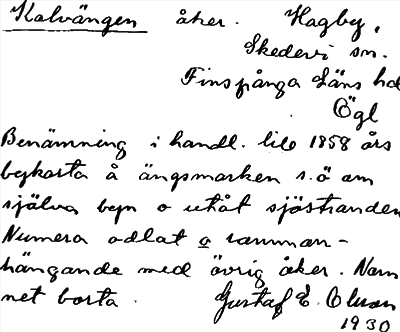 Kalvängen åker. Hagby,
Skedevi sn.
Finspånga Läns hd
Ögl
Benämning i handl. till 1858 års
bykarta å ängsmarken s.ö om
själva byn o utåt sjöstranden
Numera odlat o samman-
hängande med övrig åker. Nam
net borta. Gustaf E. Olsson
1930